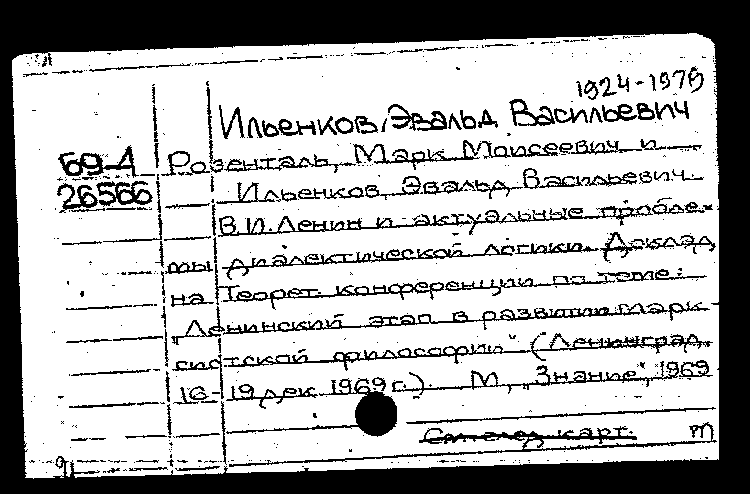 1924-1979
Ильенков, Эвальд Васильевич
69-4 Розенталь, Марк Моисеевич и
26566 Ильенков, Эвальд Васильевич.
В.И.Ленин и актуальные пробле-
мы диалектической логики. Доклад
на Теорет. конференции по теме:
"Ленинский этап в развитии марк-
систской философии" (Ленинград,
16-19 дек. 1969 г.) М., "Знание", 1969
карт. т